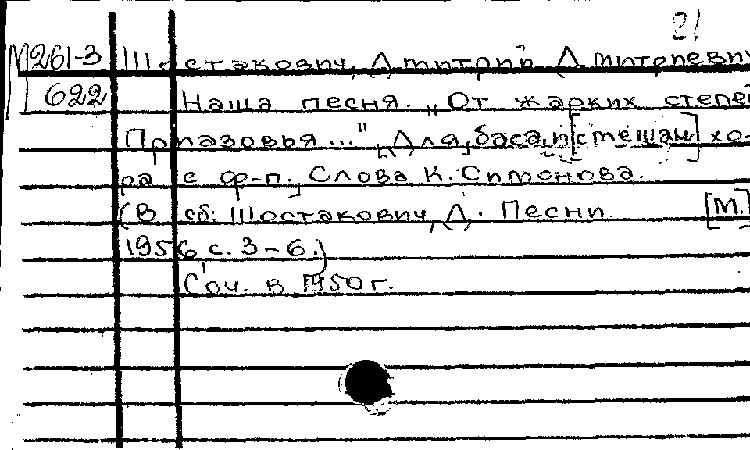 21
М261-3 Шостакович, Дмитрий Дмитриевич
622 Наша песня. „От жарких степей
Приазовья..." Для баса и [смешан] хо-
ра с ф-п. Слова К. Симонова.
(В сб: Шостакович, Д. Песни [М.]
1956, с. 3-6.)
Соч. в 1950 г.